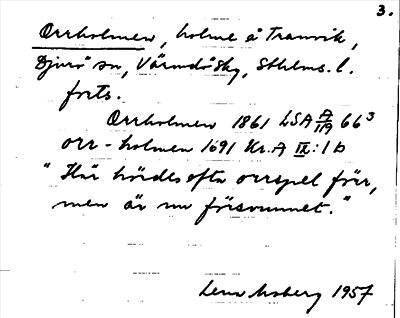 3.
Orrholmen, holme å Tranvik,
Djurö sn, Värmdö skg, Sthlms. l.
forts.
Orrholmen 1861 LSA A/119 66³
orr-holmen 1691 Kr.A IX:1 b
"Här hördes ofta orrspel förr,
men är nu försvunnet."
Lena Moberg 1957